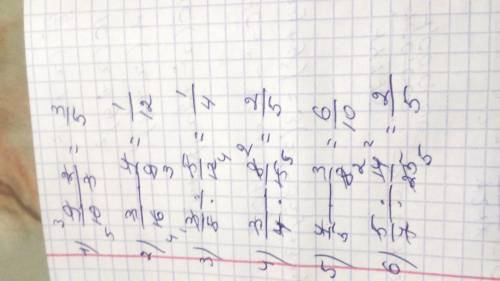 1) 9/10 · 2/3 = 3/5
2) 3/16 · 4/9 = 1/12
3) 3/5 · 5/12 = 1/4
4) 3/4 · 8/15 = 2/5
5) 4/5 · 3/8 = 6/10
6) 5/7 · 14/25 = 2/5